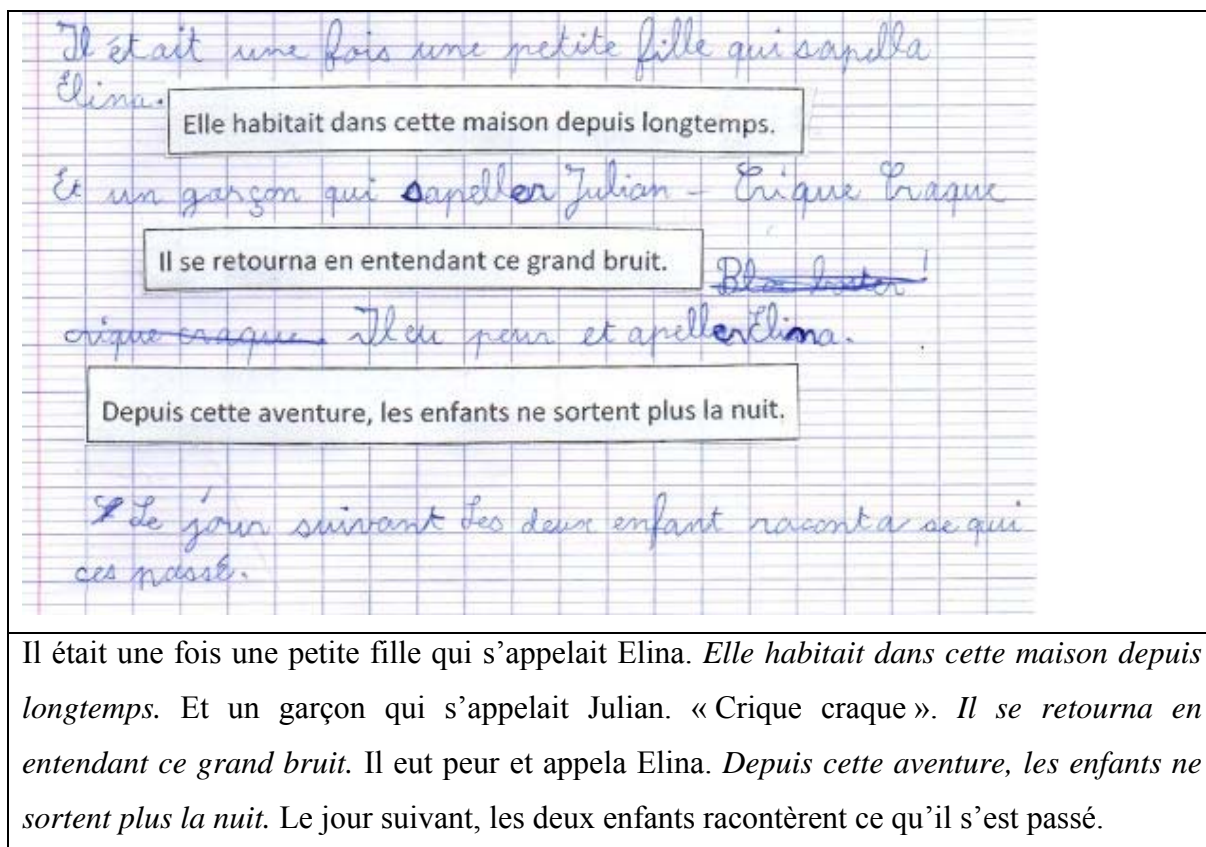 Il était une fois une petite fille qui sapella
Elina.
Elle habitait dans cette maison depuis longtemps.
Et un garçon qui sapeller Julian – Crique Craque
Il se retourna en entendant ce grand bruit.
crique craque. Il eu peur et apeller Elina.
Depuis cette aventure, les enfants ne sortent plus la nuit.
Le jour suivant Les deux enfant raconta se qui
ces passé.
Il était une fois une petite fille qui s’appelait Elina. Elle habitait dans cette maison depuis
longtemps. Et un garçon qui s’appelait Julian. « Crique craque ». Il se retourna en
entendant ce grand bruit. Il eut peur et appela Elina. Depuis cette aventure, les enfants ne
sortent plus la nuit. Le jour suivant, les deux enfants racontèrent ce qu’il s’est passé.